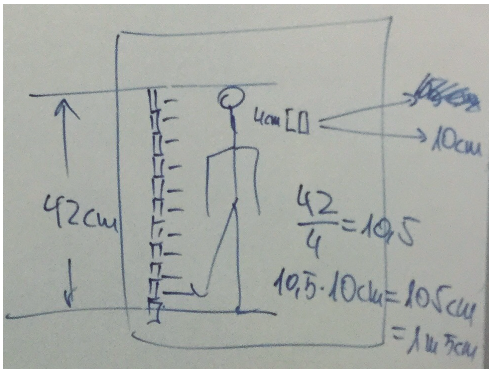 4cm
10cm
42cm
42
4
=10,5
10,5·10cm=105cm
=1m5cm